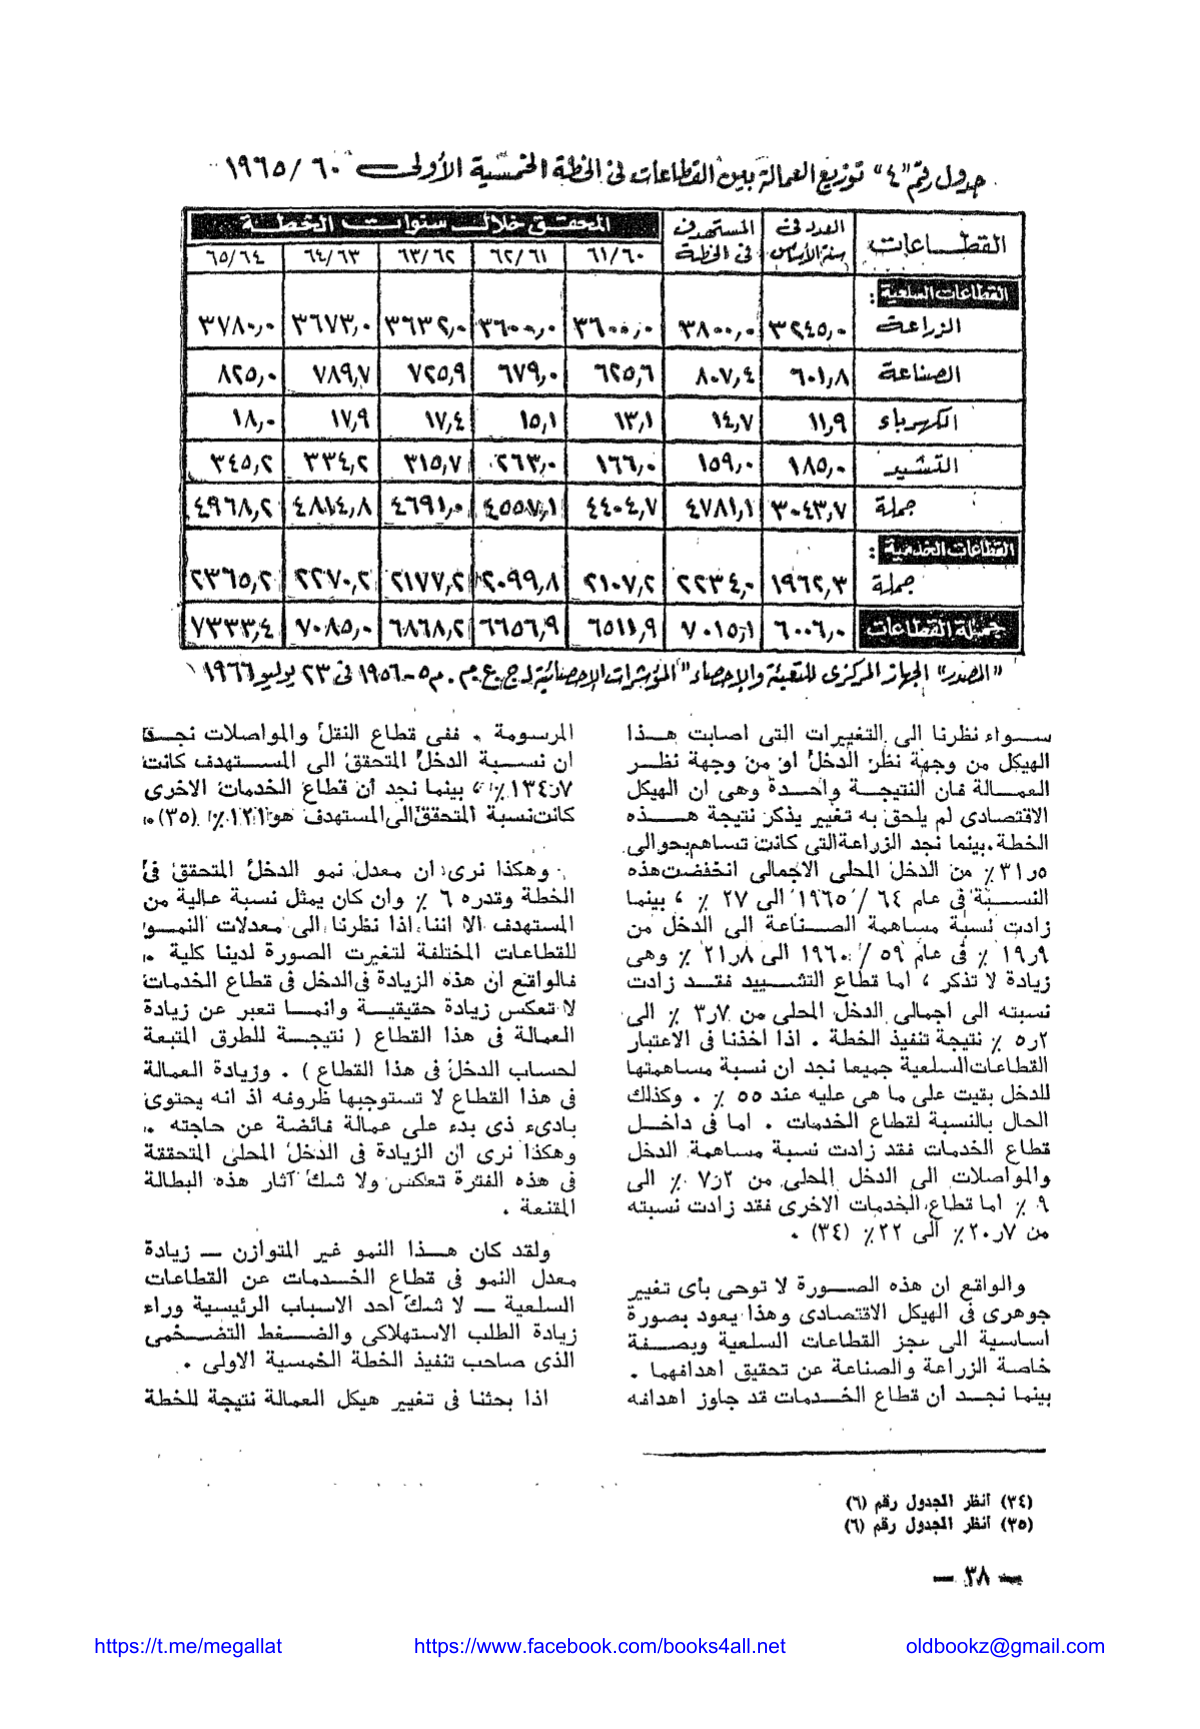 جدول رقم "٤" توزيع العمالة بين القطاعات فى الخطة الخمسية الأولى ٦٠/١٩٦٥
القطاعات | العدد فى سنة الأساس | المستهدف فى الخطة | المحقق خلال سنوات الخطة
٦١/٦٠ | ٦٢/٦١ | ٦٣/٦٢ | ٦٤/٦٣ | ٦٥/٦٤
القطاعات السلعية :
الزراعة | ٣٢٤٥,٠ | ٣٨٠٠,٠ | ٣٦٠٠,٠ | ٣٦٠٠,٠ | ٣٦٣٢,٠ | ٣٦٧٣,٠ | ٣٧٨٠,٠
الصناعة | ٦٠١,٨ | ٨٠٧,٤ | ٦٢٥,٦ | ٦٧٩,٠ | ٧٢٥,٩ | ٧٨٩,٧ | ٨٢٥,٠
الكهرباء | ١١,٩ | ١٤,٧ | ١٣,١ | ١٥,١ | ١٧,٤ | ١٧,٩ | ١٨,٠
التشييد | ١٨٥,٠ | ١٥٩,٠ | ١٦٦,٠ | ٢٦٣,٠ | ٣١٥,٧ | ٣٣٤,٢ | ٣٤٥,٢
جملة | ٣٠٤٣,٧ | ٤٧٨١,١ | ٤٤٠٤,٧ | ٤٥٥٧,١ | ٤٦٩١,٠ | ٤٨١٤,٨ | ٤٩٦٨,٢
القطاعات الخدمية :
جملة | ١٩٦٢,٣ | ٢٢٣٤,٠ | ٢١٠٧,٢ | ٢٠٩٩,٨ | ٢١٧٧,٢ | ٢٢٧٠,٢ | ٢٣٦٥,٢
جملة القطاعات | ٦٠٠٦,٠ | ٧٠١٥,١ | ٦٥١١,٩ | ٦٦٥٦,٩ | ٦٨٦٨,٢ | ٧٠٨٥,٠ | ٧٣٣٣,٤
"المصدر" الجهاز المركزى للتعبئة والإحصاء "المؤشرات الإحصائية لـ ج.ع.م. م٥-١٩٥٦ فى ٢٣ يوليو ١٩٦٦
سواء نظرنا الى التغييرات التى اصابت هذا
الهيكل من وجهة نظر الدخل او من وجهة نظر
العمالة فان النتيجة واحدة وهى ان الهيكل
الاقتصادى لم يلحق به تغيير يذكر نتيجة هذه
الخطة. بينما نجد الزراعة التى كانت تساهم بحوالى
٣١ر٥ ٪ من الدخل المحلى الاجمالى انخفضت هذه
النسبة فى عام ٦٤ / ١٩٦٥ الى ٢٧ ٪ ، بينما
زادت نسبة مساهمة الصناعة الى الدخل من
١٩ر٩ ٪ فى عام ٥٩ / ١٩٦٠ الى ٢١ر٨ ٪ وهى
زيادة لا تذكر ، اما قطاع التشييد فقد زادت
نسبته الى اجمالى الدخل المحلى من ٣ر٧ ٪ الى
٥ر٢ ٪ نتيجة تنفيذ الخطة . اذا اخذنا فى الاعتبار
القطاعات السلعية جميعا نجد ان نسبة مساهمتها
للدخل بقيت على ما هى عليه عند ٥٥ ٪ . وكذلك
الحال بالنسبة لقطاع الخدمات . اما فى داخل
قطاع الخدمات فقد زادت نسبة مساهمة الدخل
والمواصلات الى الدخل المحلى من ٧ر٢ ٪ الى
٩ ٪ اما قطاع الخدمات الاخرى فقد زادت نسبته
من ٢٠ر٧٪ الى ٢٢٪ (٣٤) .
والواقع ان هذه الصورة لا توحى بأى تغيير
جوهرى فى الهيكل الاقتصادى وهذا يعود بصورة
اساسية الى عجز القطاعات السلعية وبصفة
خاصة الزراعة والصناعة عن تحقيق اهدافهما .
بينما نجد ان قطاع الخدمات قد جاوز اهدافه
المرسومة . ففى قطاع النقل والمواصلات نجد
ان نسبة الدخل المتحقق الى المستهدف كانت
١٣٤ر٧ ٪ ، بينما نجد أن قطاع الخدمات الاخرى
كانت نسبة المتحقق الى المستهدف هو ١٢١٪ (٣٥) .
وهكذا نرى ان معدل نمو الدخل المتحقق فى
الخطة وقدره ٦ ٪ وان كان يمثل نسبة عالية من
المستهدف الا اننا اذا نظرنا الى معدلات النمو
للقطاعات المختلفة لتغيرت الصورة لدينا كلية .
فالواقع ان هذه الزيادة فى الدخل فى قطاع الخدمات
لا تعكس زيادة حقيقية وانما تعبر عن زيادة
العمالة فى هذا القطاع ( نتيجة للطرق المتبعة
لحساب الدخل فى هذا القطاع ) . وزيادة العمالة
فى هذا القطاع لا تستوجبها ظروفه اذ انه يحتوى
بادىء ذى بدء على عمالة فائضة عن حاجته .
وهكذا نرى ان الزيادة فى الدخل المحلى المتحققة
فى هذه الفترة تعكس ولا شك آثار هذه البطالة
المقنعة .
ولقد كان هذا النمو غير المتوازن — زيادة
معدل النمو فى قطاع الخدمات عن القطاعات
السلعية — لا شك احد الاسباب الرئيسية وراء
زيادة الطلب الاستهلاكى والضغط التضخمى
الذى صاحب تنفيذ الخطة الخمسية الاولى .
اذا بحثنا فى تغيير هيكل العمالة نتيجة للخطة
(٣٤) أنظر الجدول رقم (٦)
(٣٥) أنظر الجدول رقم (٦)
— ٣٨ —
https://t.me/megallat https://www.facebook.com/books4all.net oldbookz@gmail.com